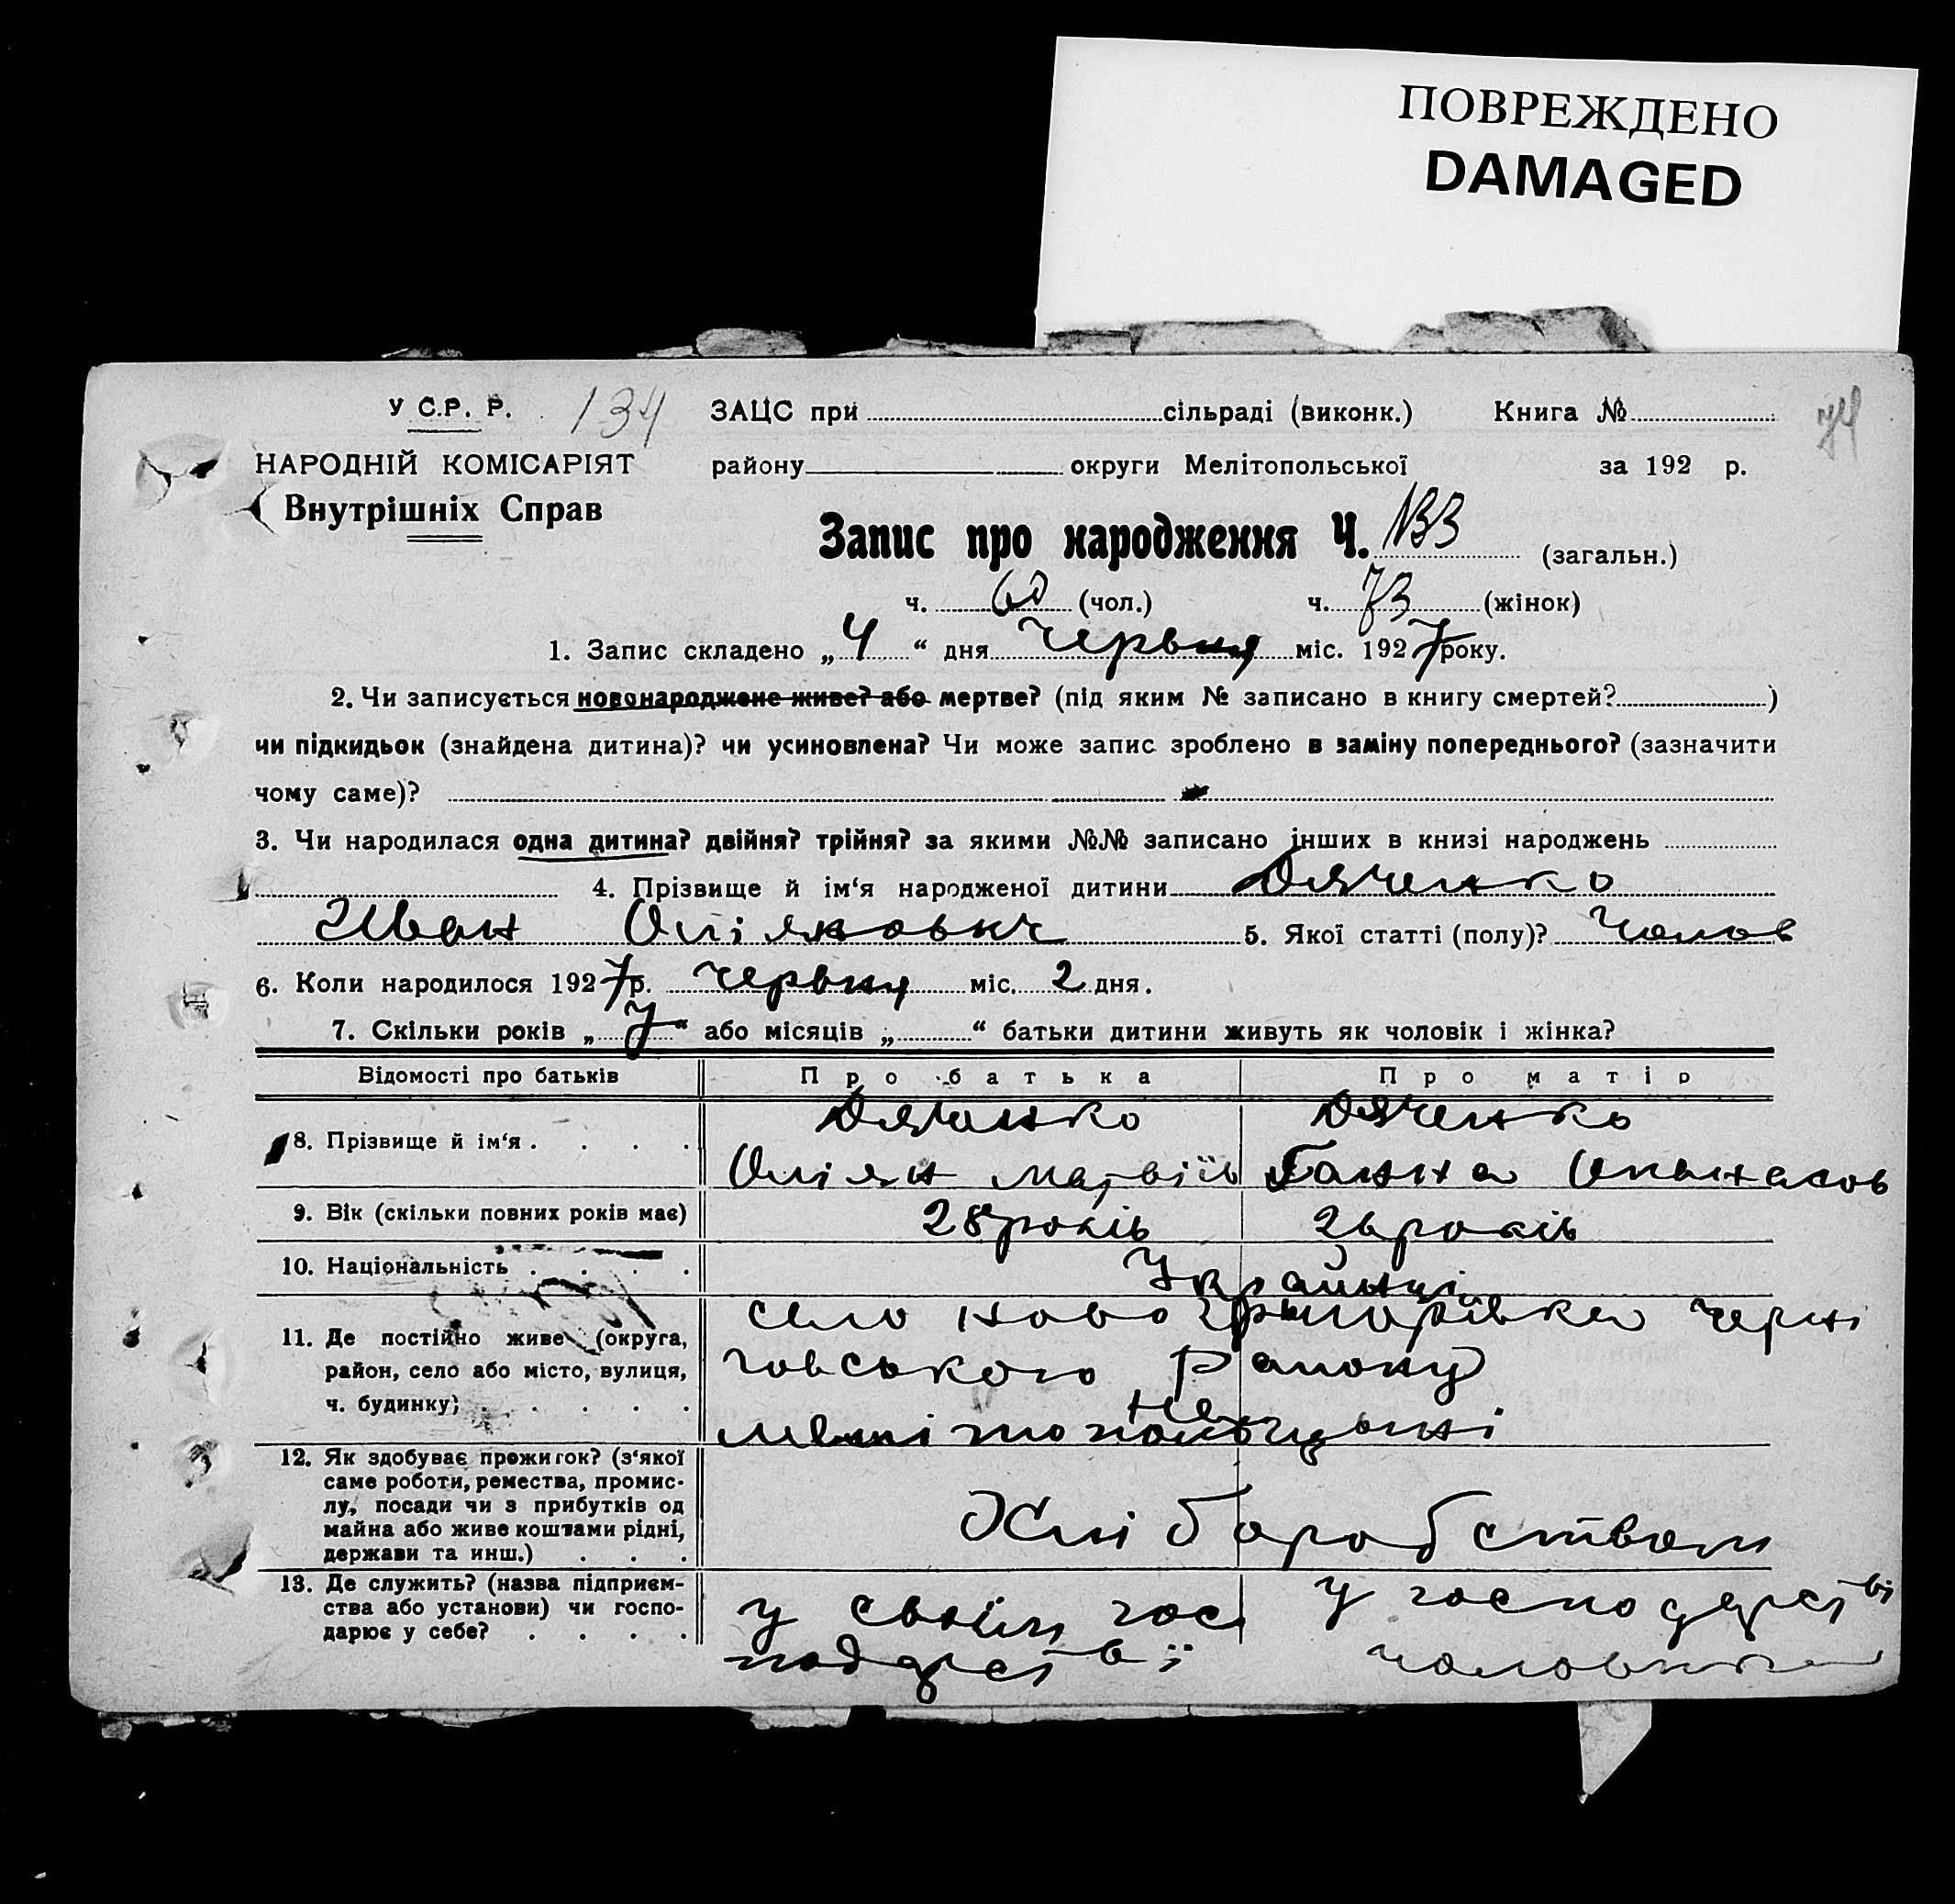 ПОВРЕЖДЕНО
DAMAGED
У С.Р.Р. 134 ЗАЦС при сільраді (виконк.) Книга № 74
НАРОДНІЙ КОМІСАРІЯТ району округи Мелітопольської за 192 р.
Внутрішніх Справ
Запис про народження Ч. 133 (загальн.)
ч. 60 (чол.) ч. 73 (жінок)
1. Запис складено „4“ дня червня міс. 1927 року.
2. Чи записується новонароджене живе? або мертве? (під яким № записано в книгу смертей? )
чи підкидьок (знайдена дитина)? чи усиновлена? Чи може запис зроблено в заміну попереднього? (зазначити
чому саме)?
3. Чи народилася одна дитина? двійня? трійня? за якими №№ записано інших в книзі народжень
4. Прізвище й ім‘я народженої дитини Дяченко
Иван Оліянович 5. Якої статті (полу)? Чолов
6. Коли народилося 1927 р. червня міс. 2 дня.
7. Скільки років „7“ або місяців „ “ батьки дитини живуть як чоловік і жінка?
Відомості про батьків Про батька Про матір
8. Прізвище й ім‘я . . . . Дяченко Дяченко
Оліян Матвіїв Ганна Опанасов
9. Вік (скільки повних років має) 28 років 26 років
10. Національність . . . . Українці
11. Де постійно живе (округа, село Ново Григорівка Черні
район, село або місто, вулиця, говського Району
ч. будинку) . . . . . на
Мелітопольщині
12. Як здобуває прожиток? (з‘якої
саме роботи, ремества, промис-
лу, посади чи з прибутків од
майна або живе коштами рідні, Хліборобством
держави та инш.) . . .
13. Де служить? (назва підприєм- у господарстві
ства або установи) чи госпо- у своїм гос
дарює у себе? . . . .
подарстві чоловіка